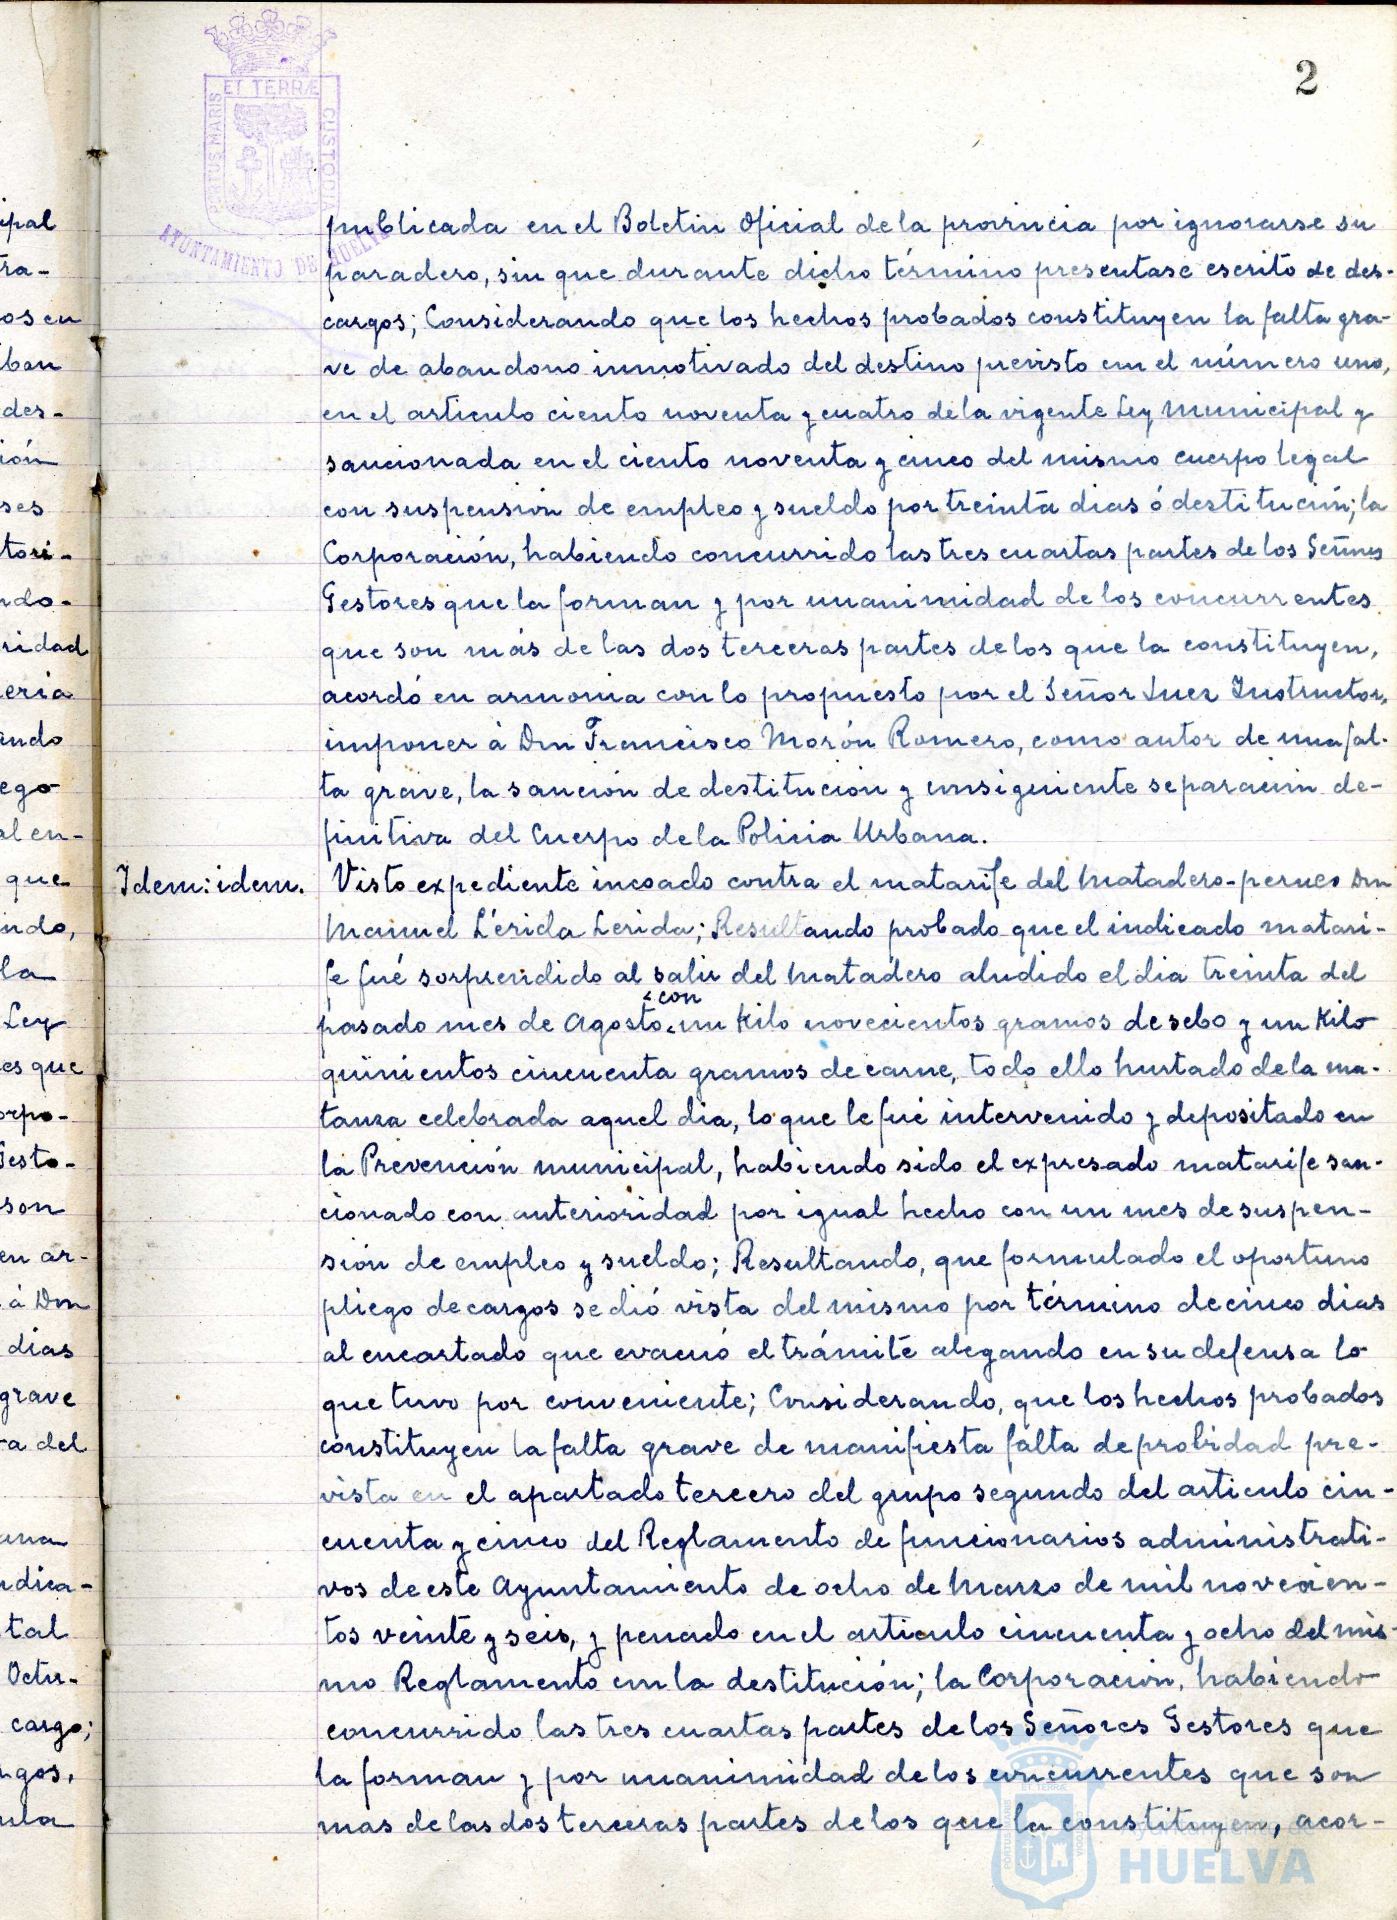 2
ET TERRÆ
PORTUS MARIS
CUSTODIA
AYUNTAMIENTO DE HUELVA
publicada en el Boletin Oficial de la provincia por ignorarse su
paradero, sin que durante dicho término presentase escrito de des-
cargos; Considerando que los hechos probados constituyen la falta gra-
ve de abandono inmotivado del destino previsto en el número uno,
en el articulo ciento noventa y cuatro de la vigente Ley Municipal y
sancionada en el ciento noventa y cinco del mismo cuerpo legal
con suspensión de empleo y sueldo por treinta dias ó destitución; la
Corporación, habiendo concurrido las tres cuartas partes de los Señores
Gestores que la forman y por unanimidad de los concurrentes
que son más de las dos terceras partes de los que la constituyen,
acordó en armonia con lo propuesto por el Señor Juez Instructor,
imponer á Don Francisco Morón Romero, como autor de una fal-
ta grave, la sanción de destitución y consiguiente separación de-
finitiva del Cuerpo de la Policia Urbana.
Idem: idem. Visto expediente incoado contra el matarife del Matadero-
Don
Manuel Lérida Lerida; Resultando probado que el indicado matari-
fe fué sorprendido al salir del Matadero aludido el dia treinta del
con
pasado mes de Agosto un Kilo novecientos gramos de sebo y un Kilo
quinientos cincuenta gramos de carne, todo ello hurtado de la ma-
tanza celebrada aquel dia, lo que le fué intervenido y depositado en
la Prevención municipal, habiendo sido el expresado matarife san-
cionado con anterioridad por igual hecho con un mes de suspen-
sión de empleo y sueldo; Resultando, que formulado el oportuno
pliego de cargos se dió vista del mismo por término de cinco dias
al encartado que evacuó el trámite alegando en su defensa lo
que tuvo por conveniente; Considerando, que los hechos probados
constituyen la falta grave de manifiesta falta de probidad pre-
vista en el apartado tercero del grupo segundo del articulo cin-
cuenta y cinco del Reglamento de funcionarios administrati-
vos de este Ayuntamiento de ocho de Marzo de mil novecien-
tos veinte y seis, y penado en el articulo cincuenta y ocho del mis-
mo Reglamento con la destitución; la Corporación, habiendo
concurrido las tres cuartas partes de los Señores Gestores que
la forman y por unanimidad de los concurrentes que son
mas de las dos terceras partes de los que la constituyen, acor-
Ayuntamiento de
HUELVA
ipal
tra-
os en
iban
des-
ión
ses
tori-
ndo-
ridad
eria
ando
ego
al en-
que
ndo,
la
Ley
es que
orpo-
Gesto-
son
en ar-
á Don
dias
grave
a del
ana
dica-
tal
Octu-
cargo;
rgos,
ula